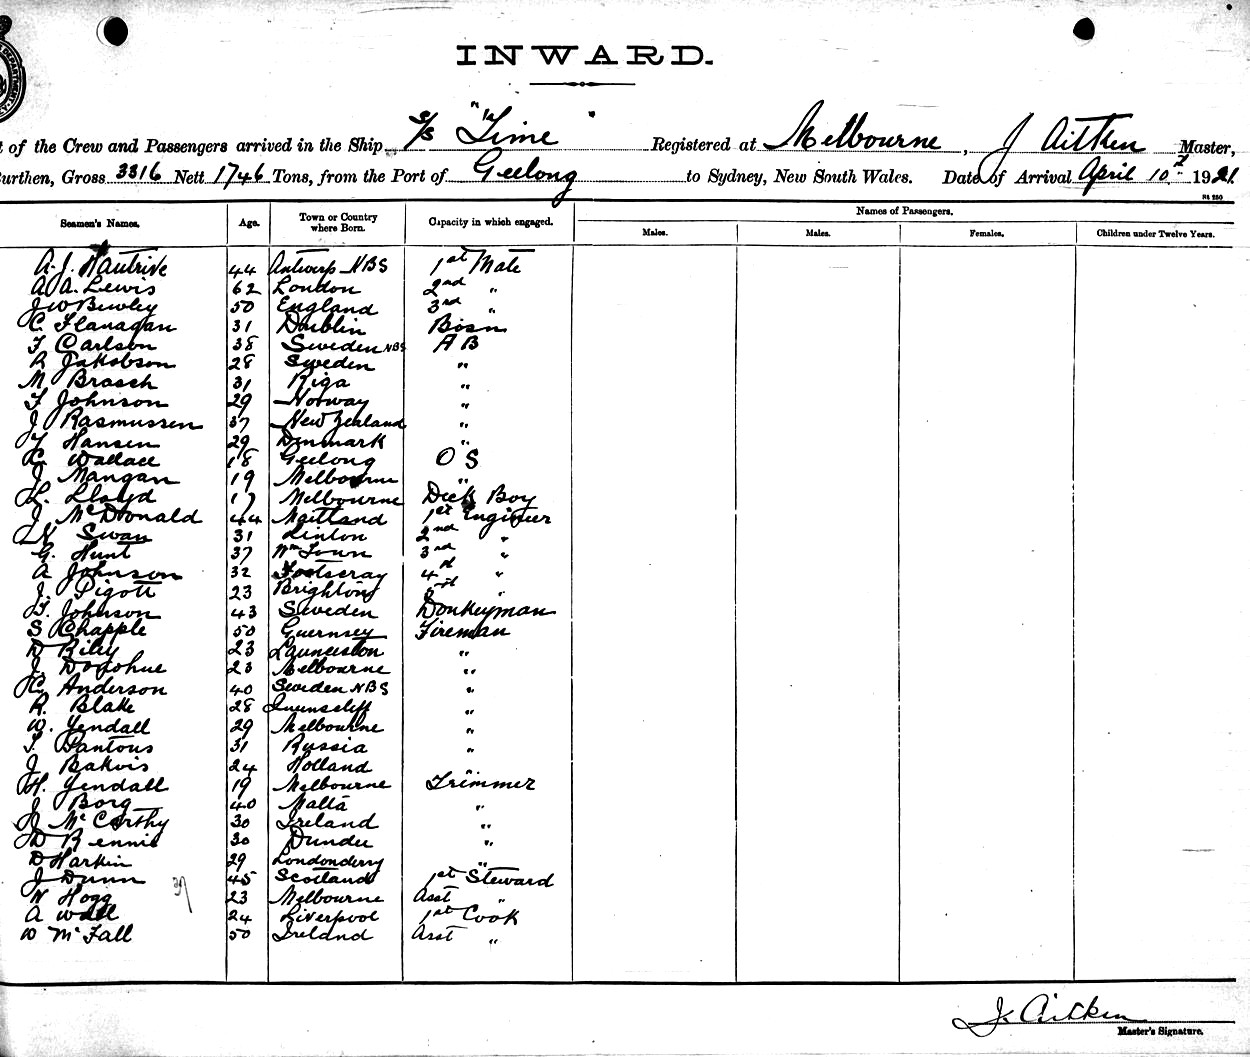 INWARD.
of the Crew and Passengers arrived in the Ship S/S "Time" Registered at Melbourne, J Aitken Master,
Burthen, Gross 3316 Nett 1746 Tons, from the Port of Geelong to Sydney, New South Wales. Date of Arrival April 10 1921
Seamen's Names. Age. Town or Country where Born. Capacity in which engaged. Names of Passengers.
Males. Males. Females. Children under Twelve Years.
A. J. Hautrive 44 Antwerp NBS 1st Mate
A A. Lewis 62 London 2nd "
J W Bewley 50 England 3rd "
C. Flanagan 31 Dublin Bosn
F Carlson 38 Sweden NBS A B
R Jakobson 28 Sweden "
M Brasch 31 Riga "
F Johnson 29 Norway "
J Rasmussen 37 New Zealand "
Hansen 29 Denmark "
Wallace 18 Geelong O S
J Mangan 19 Melbourne "
L. Lloyd 17 Melbourne Deck Boy
J McDonald 44 Maitland 1st Engineer
N Swan 31 Linton 2nd "
G. Hunt 37 Wm Town 3rd "
A Johnson 32 Footscray 4th "
J. Pigott 23 Brighton "
Johnson 43 Sweden Donkeyman
S Chapple 50 Guernsey Fireman
D Riley 23 Launceston "
J Donohue 23 Melbourne "
C. Anderson 40 Sweden NBS "
R. Blake 28 Queenscliff "
W. Yendall 29 Melbourne "
Pantous 31 Russia "
J Bakvis 24 Holland "
H. Yendall 19 Melbourne Trimmer
J Borg 40 Malta "
J McCarthy 30 Ireland "
D Rennie 30 Dundee "
D Harkin 29 Londonderry "
J Dunn 45 Scotland 1st Steward
W Hogg 23 Melbourne Asst "
A Wall 24 Liverpool 1st Cook
W McFall 50 Ireland Asst "
J Aitken
Master's Signature.